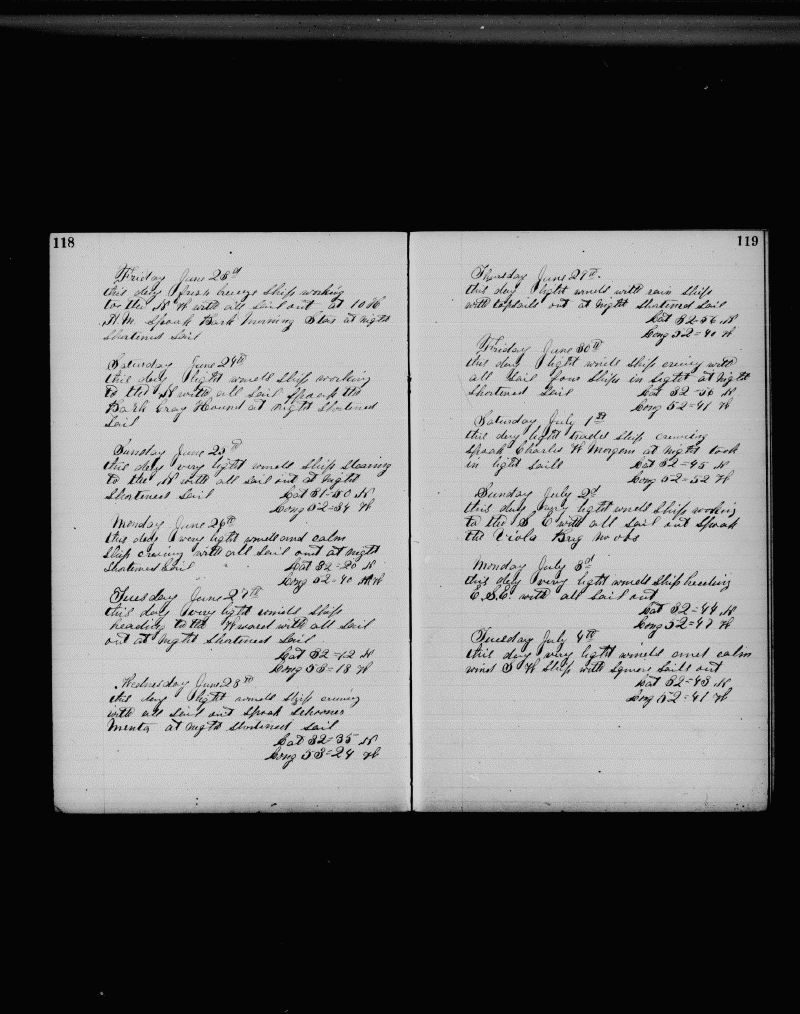 118
Friday June 23d
this day fresh breeze Ship working
to the N W with all Sail out at 10 30
A.M. Spoak Bark Morning Star at night
Shortened Sail
Saturday June 24th
this day light winds Ship working
to the N with all Sail Spoak the
Bark Gray Hound at night Shortened
Sail
Sunday June 25th
this day very light winds Ship Stearing
to the N with all Sail out at Night
Shortened Sail Lat 31-50 N
Long 52=34 W
Monday June 26th
this day very light winds and calm
Ship cruing with all Sail out at night
Shortened Sail Lat 32=20 N
Long 52=40 W
Tuesday June 27th
this day very light winds Ship
heading to the W ward with all Sail
out at Night Shortened Sail
Lat 32=12 N
Long 53=18 W
Wednesday June 28th
this day light winds Ship cruing
with all Sail out Spoak Schooner
at Night Shortened Sail
Lat 32=35 N
Long 53=24 W
119
Thursday June 29th
this day light winds with rain Ship
with topsails out at Night Shortened Sail
Lat 32-56 N
Long 52=40 W
Friday June 30th
this day light winds Ship cruing with
all Sail four Ships in Sight at Night
Shortened Sail Lat 32-50 N
Long 52=41 W
Saturday July 1st
this day light trades Ship cruwing
Spoak Charles W Morgan at Night took
in light Sails Lat 32=45 N
Long 52=52 W
Sunday July 2d
this day very light winds Ship working
to the S E with all Sail out Spoak
the Viola Brig no obs
Monday July 3d
this day very light winds Ship heading
E.S.E. with all Sail out
Lat 32=44 N
Long 52=47 W
Tuesday July 4th
this day very light winds and calm
wind S W Ship with Square Sails out
Lat 32=43 N
Long 52=41 W